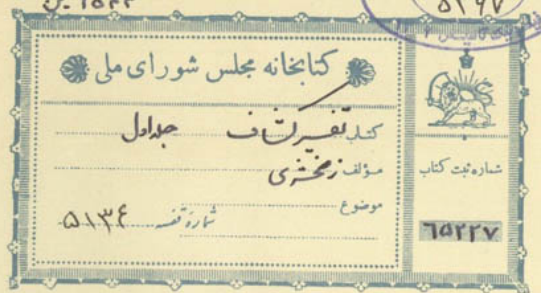 ۵۱۹۷
کتابخانه مجلس شورای ملی
کتاب تفسیر کشاف جلد اول
مؤلف زمخشری
موضوع
شماره قفسه ۵۱۳۴
شماره ثبت کتاب
۶۵۲۲۷